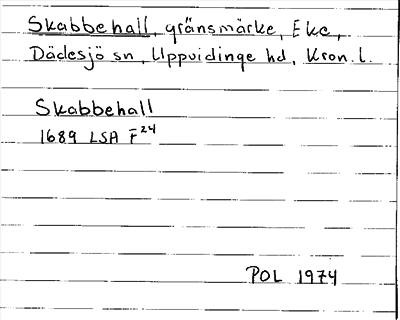 Skabbehall, gränsmärke, Eke,
Dädesjö sn, Uppvidinge hd, Kron. l.
Skabbehall
1689 LSA F24
POL 1974